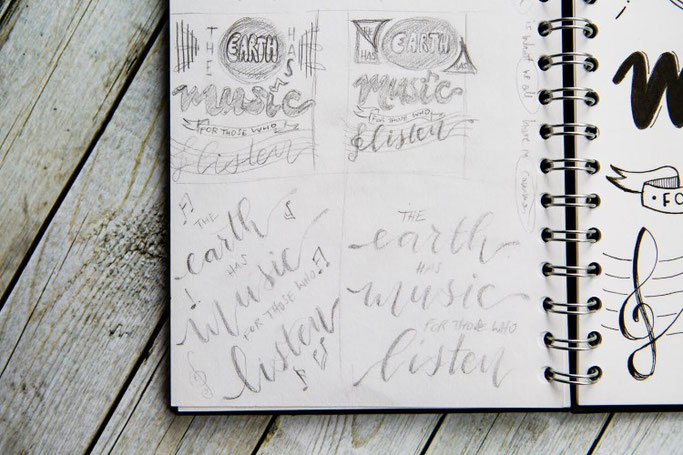 THE EARTH HAS
music
FOR THOSE WHO
listen
THE EARTH
HAS
music
FOR THOSE WHO
listen
THE
earth
HAS
Music
FOR THOSE WHO
listen
THE
earth
HAS
music
FOR THOSE WHO
listen
is what we all have in common
FO